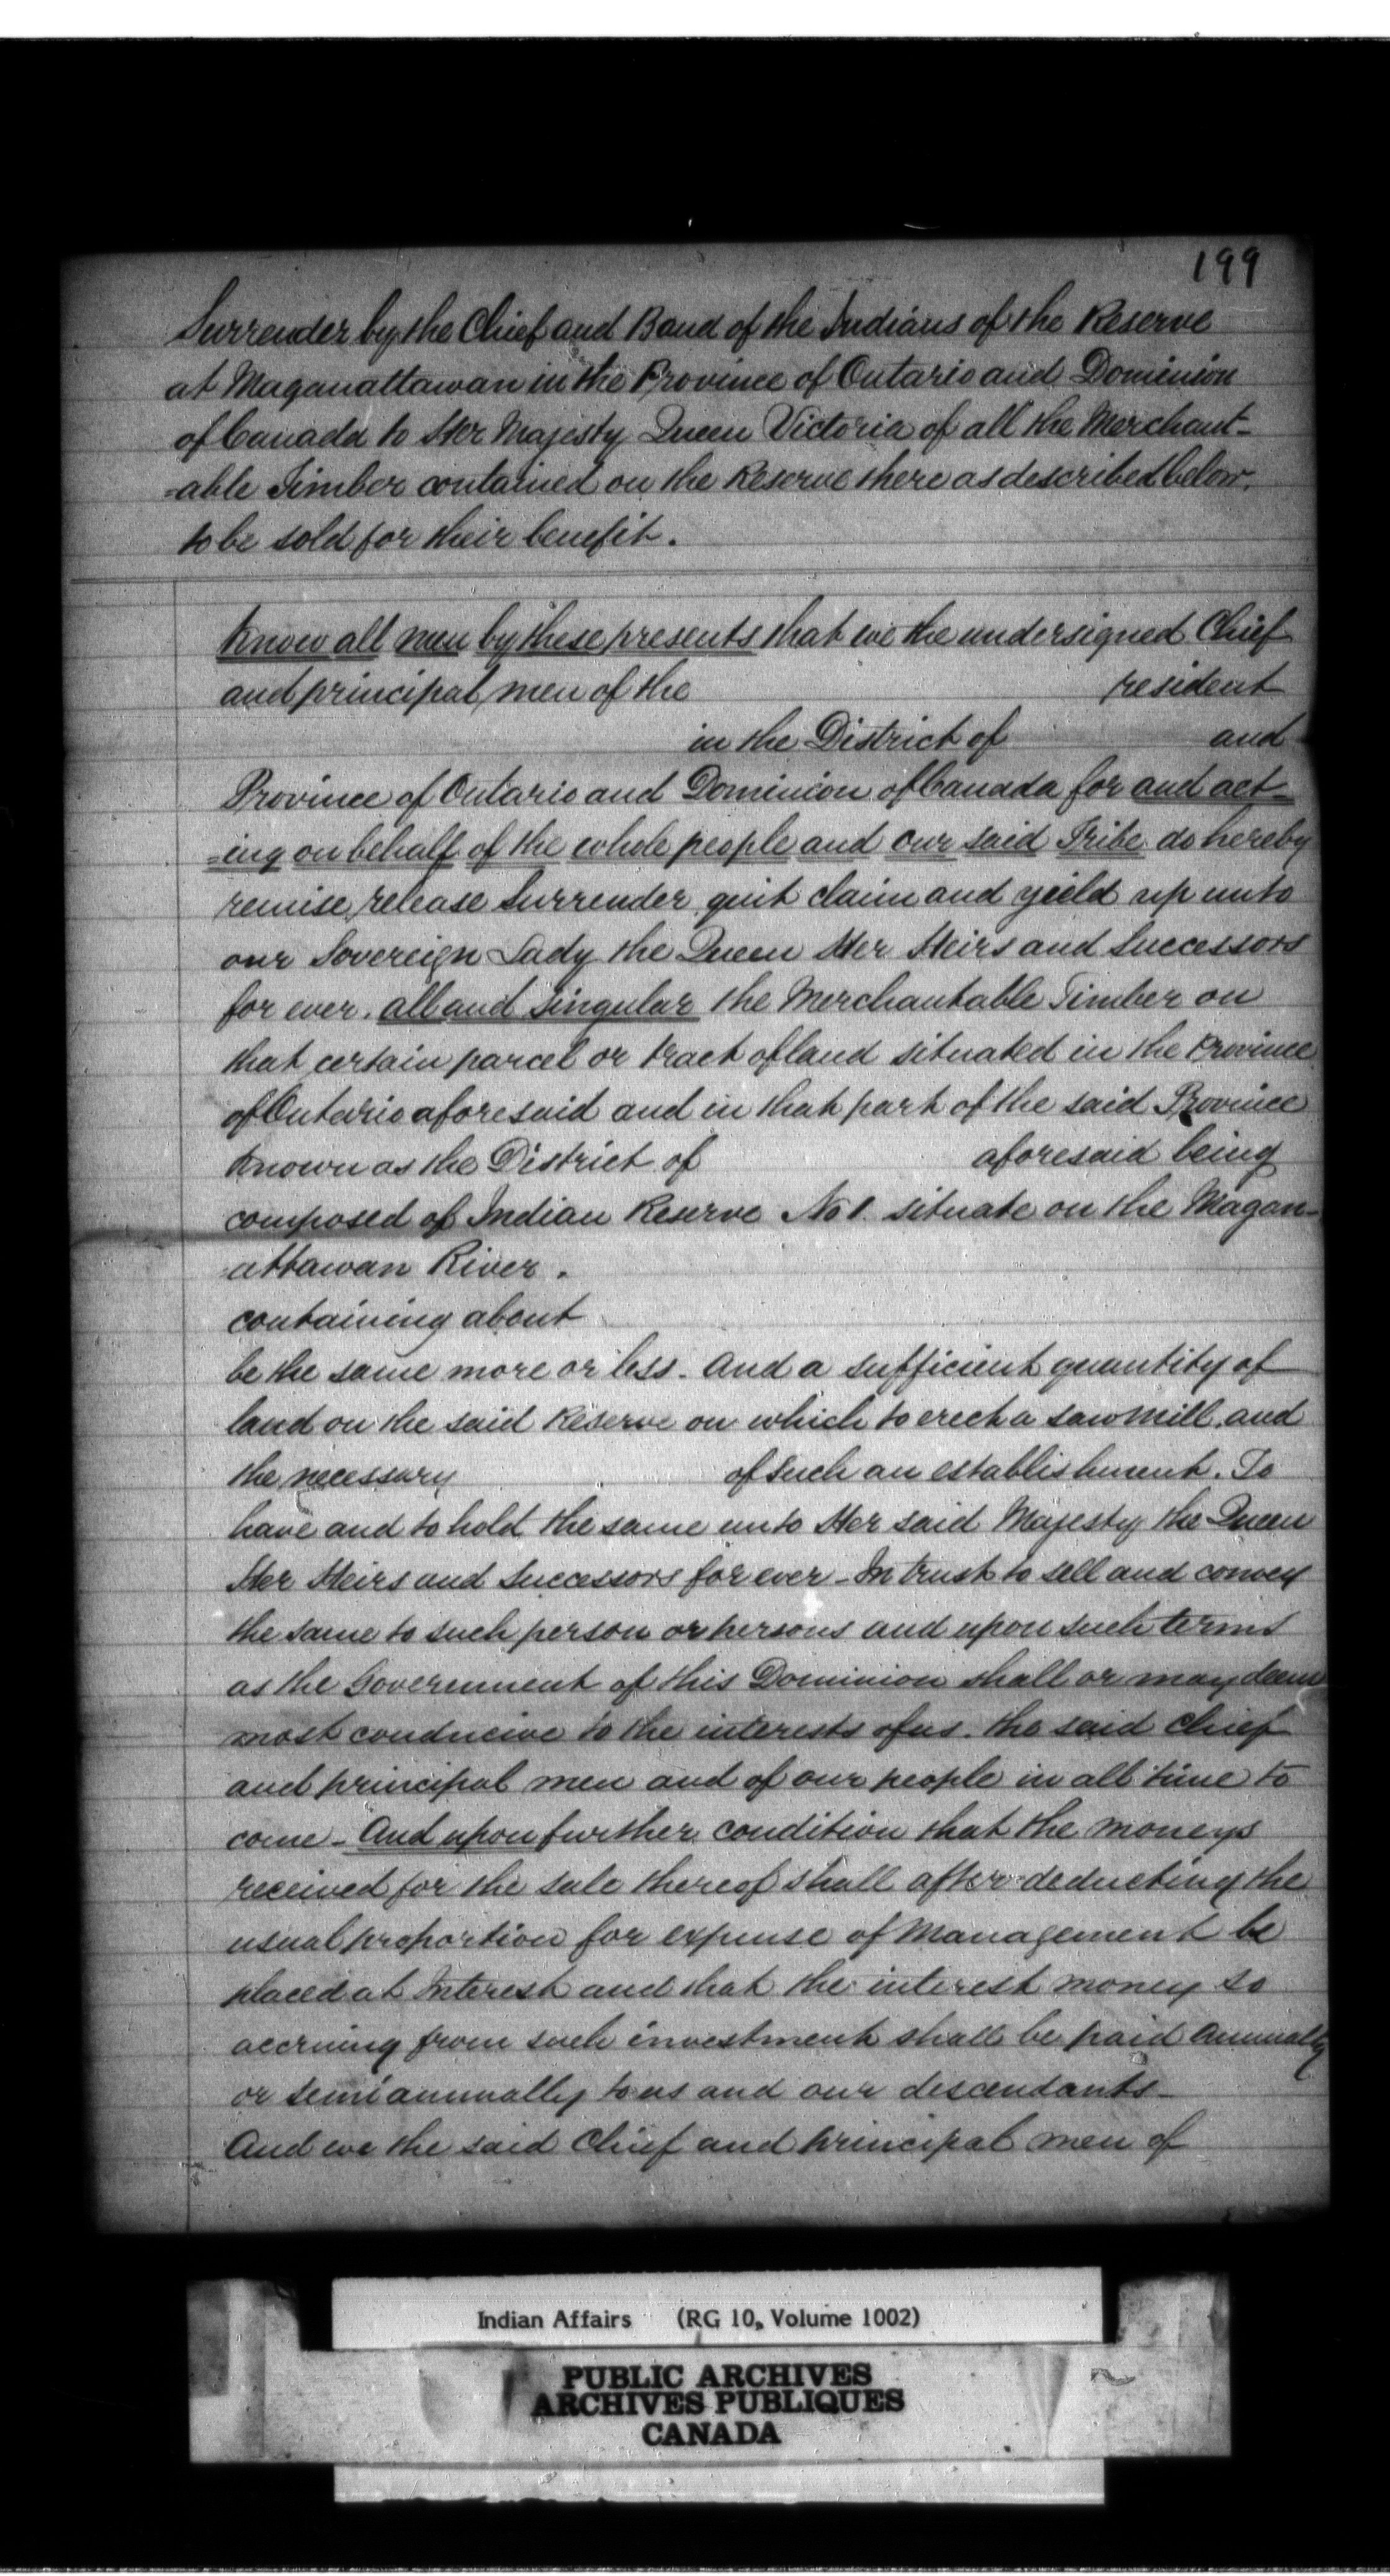 199
Surrender by the Chief and Band of the Indians of the Reserve
at Maganattawan in the Province of Ontario and Dominion
of Canada to Her Majesty Queen Victoria of all the Merchant-
-able Timber contained on the Reserve there as described below.
to be sold for their benefit.
Know all men by these presents that we the undersigned Chief
and principal men of the resident
in the District of and
Province of Ontario and Dominion of Canada for and act-
=ing on behalf of the whole people and our said Tribe do hereby
remise, release Surrender, quit claim and yield up unto
our Sovereign Lady the Queen Her Heirs and Successors
for ever. all and singular the Merchantable Timber on
that certain parcel or tract of land situated in the Province
of Ontario aforesaid and in that part of the said Province
known as the District of aforesaid being
composed of Indian Reserve No 1. situate on the Magan-
-attawan River.
containing about
be the same more or less. And a sufficient quantity of
land on the said Reserve on which to erect a sawmill and
the necessary of such an establishment. To
have and to hold the same unto Her said Majesty the Queen
Her Heirs and Successors for ever - In trust to sell and convey
the same to such person or persons and upon such terms
as the Government of this Dominion shall or may deem
most conducive to the interests of us. the said Chief
and principal men and of our people in all time to
come - And upon further condition that the moneys
received for the sale thereof shall after deducting the
usual proportion for expense of Management be
placed at Interest and that the interest money so
accruing from such investment shall be paid annually
or semi annually to us and our descendants -
And we the said Chief and principal men of
Indian Affairs (RG 10, Volume 1002)
PUBLIC ARCHIVES
ARCHIVES PUBLIQUES
CANADA